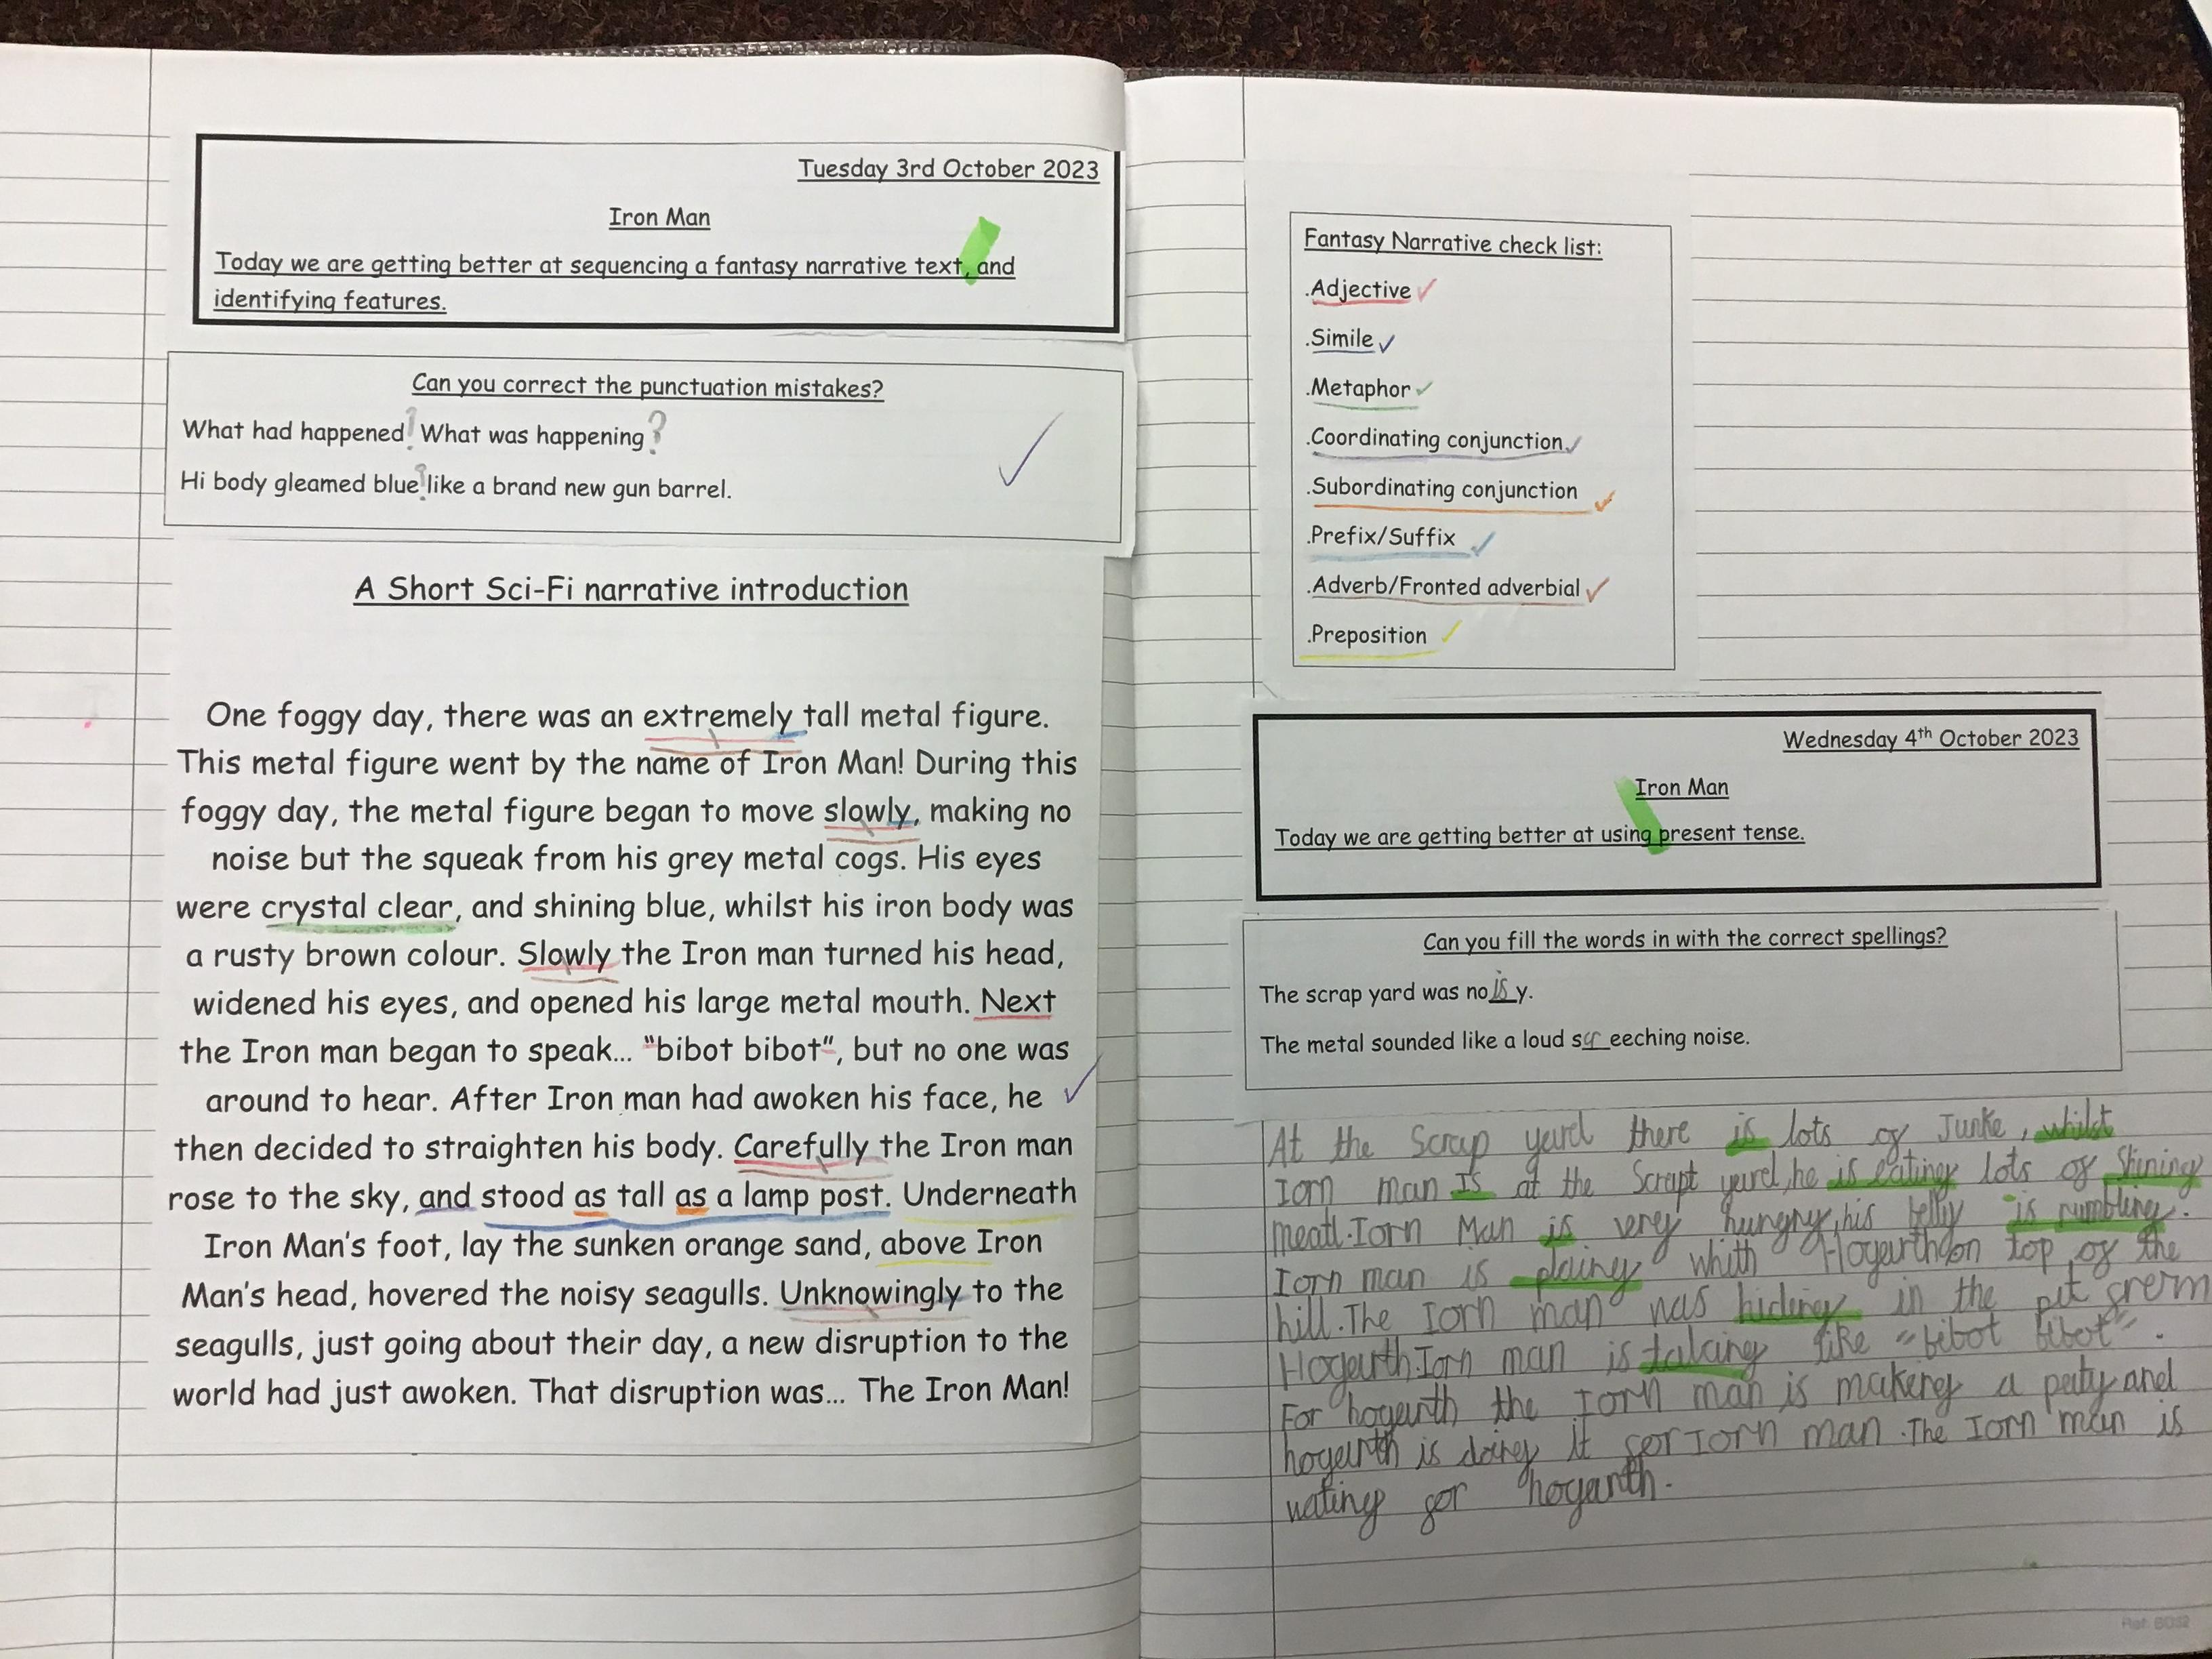 Tuesday 3rd October 2023
Iron Man
Today we are getting better at sequencing a fantasy narrative text, and
identifying features.
Can you correct the punctuation mistakes?
What had happened! What was happening?
Hi body gleamed blue?like a brand new gun barrel.
A Short Sci-Fi narrative introduction
One foggy day, there was an extremely tall metal figure.
This metal figure went by the name of Iron Man! During this
foggy day, the metal figure began to move slowly, making no
noise but the squeak from his grey metal cogs. His eyes
were crystal clear, and shining blue, whilst his iron body was
a rusty brown colour. Slowly the Iron man turned his head,
widened his eyes, and opened his large metal mouth. Next
the Iron man began to speak... “bibot bibot”, but no one was
around to hear. After Iron man had awoken his face, he
then decided to straighten his body. Carefully the Iron man
rose to the sky, and stood as tall as a lamp post. Underneath
Iron Man's foot, lay the sunken orange sand, above Iron
Man's head, hovered the noisy seagulls. Unknowingly to the
seagulls, just going about their day, a new disruption to the
world had just awoken. That disruption was... The Iron Man!
Fantasy Narrative check list:
.Adjective ✓
.Simile ✓
.Metaphor ✓
.Coordinating conjunction ✓
.Subordinating conjunction ✓
.Prefix/Suffix ✓
.Adverb/Fronted adverbial ✓
.Preposition ✓
Wednesday 4th October 2023
Iron Man
Today we are getting better at using present tense.
Can you fill the words in with the correct spellings?
The scrap yard was noisy.
The metal sounded like a loud screeching noise.
At the Scrap yard there is lots of Junke, whilst
Iorn man Is at the Scrapt yard,he is eating lots of Shining
meatl.Iorn Man is very hungry,his belly is rumbling.
Iorn man is plaing whith Hogarth on top of the
hill.The Iorn man was hiding in the pit frem
Hogarth.Iorn man is talcing like "bibot bibot".
For hogarth the Iorn man is makeng a paty and
hogarth is doing it for Iorn man.The Iorn man is
wating for hogarth.
Ref: BD32